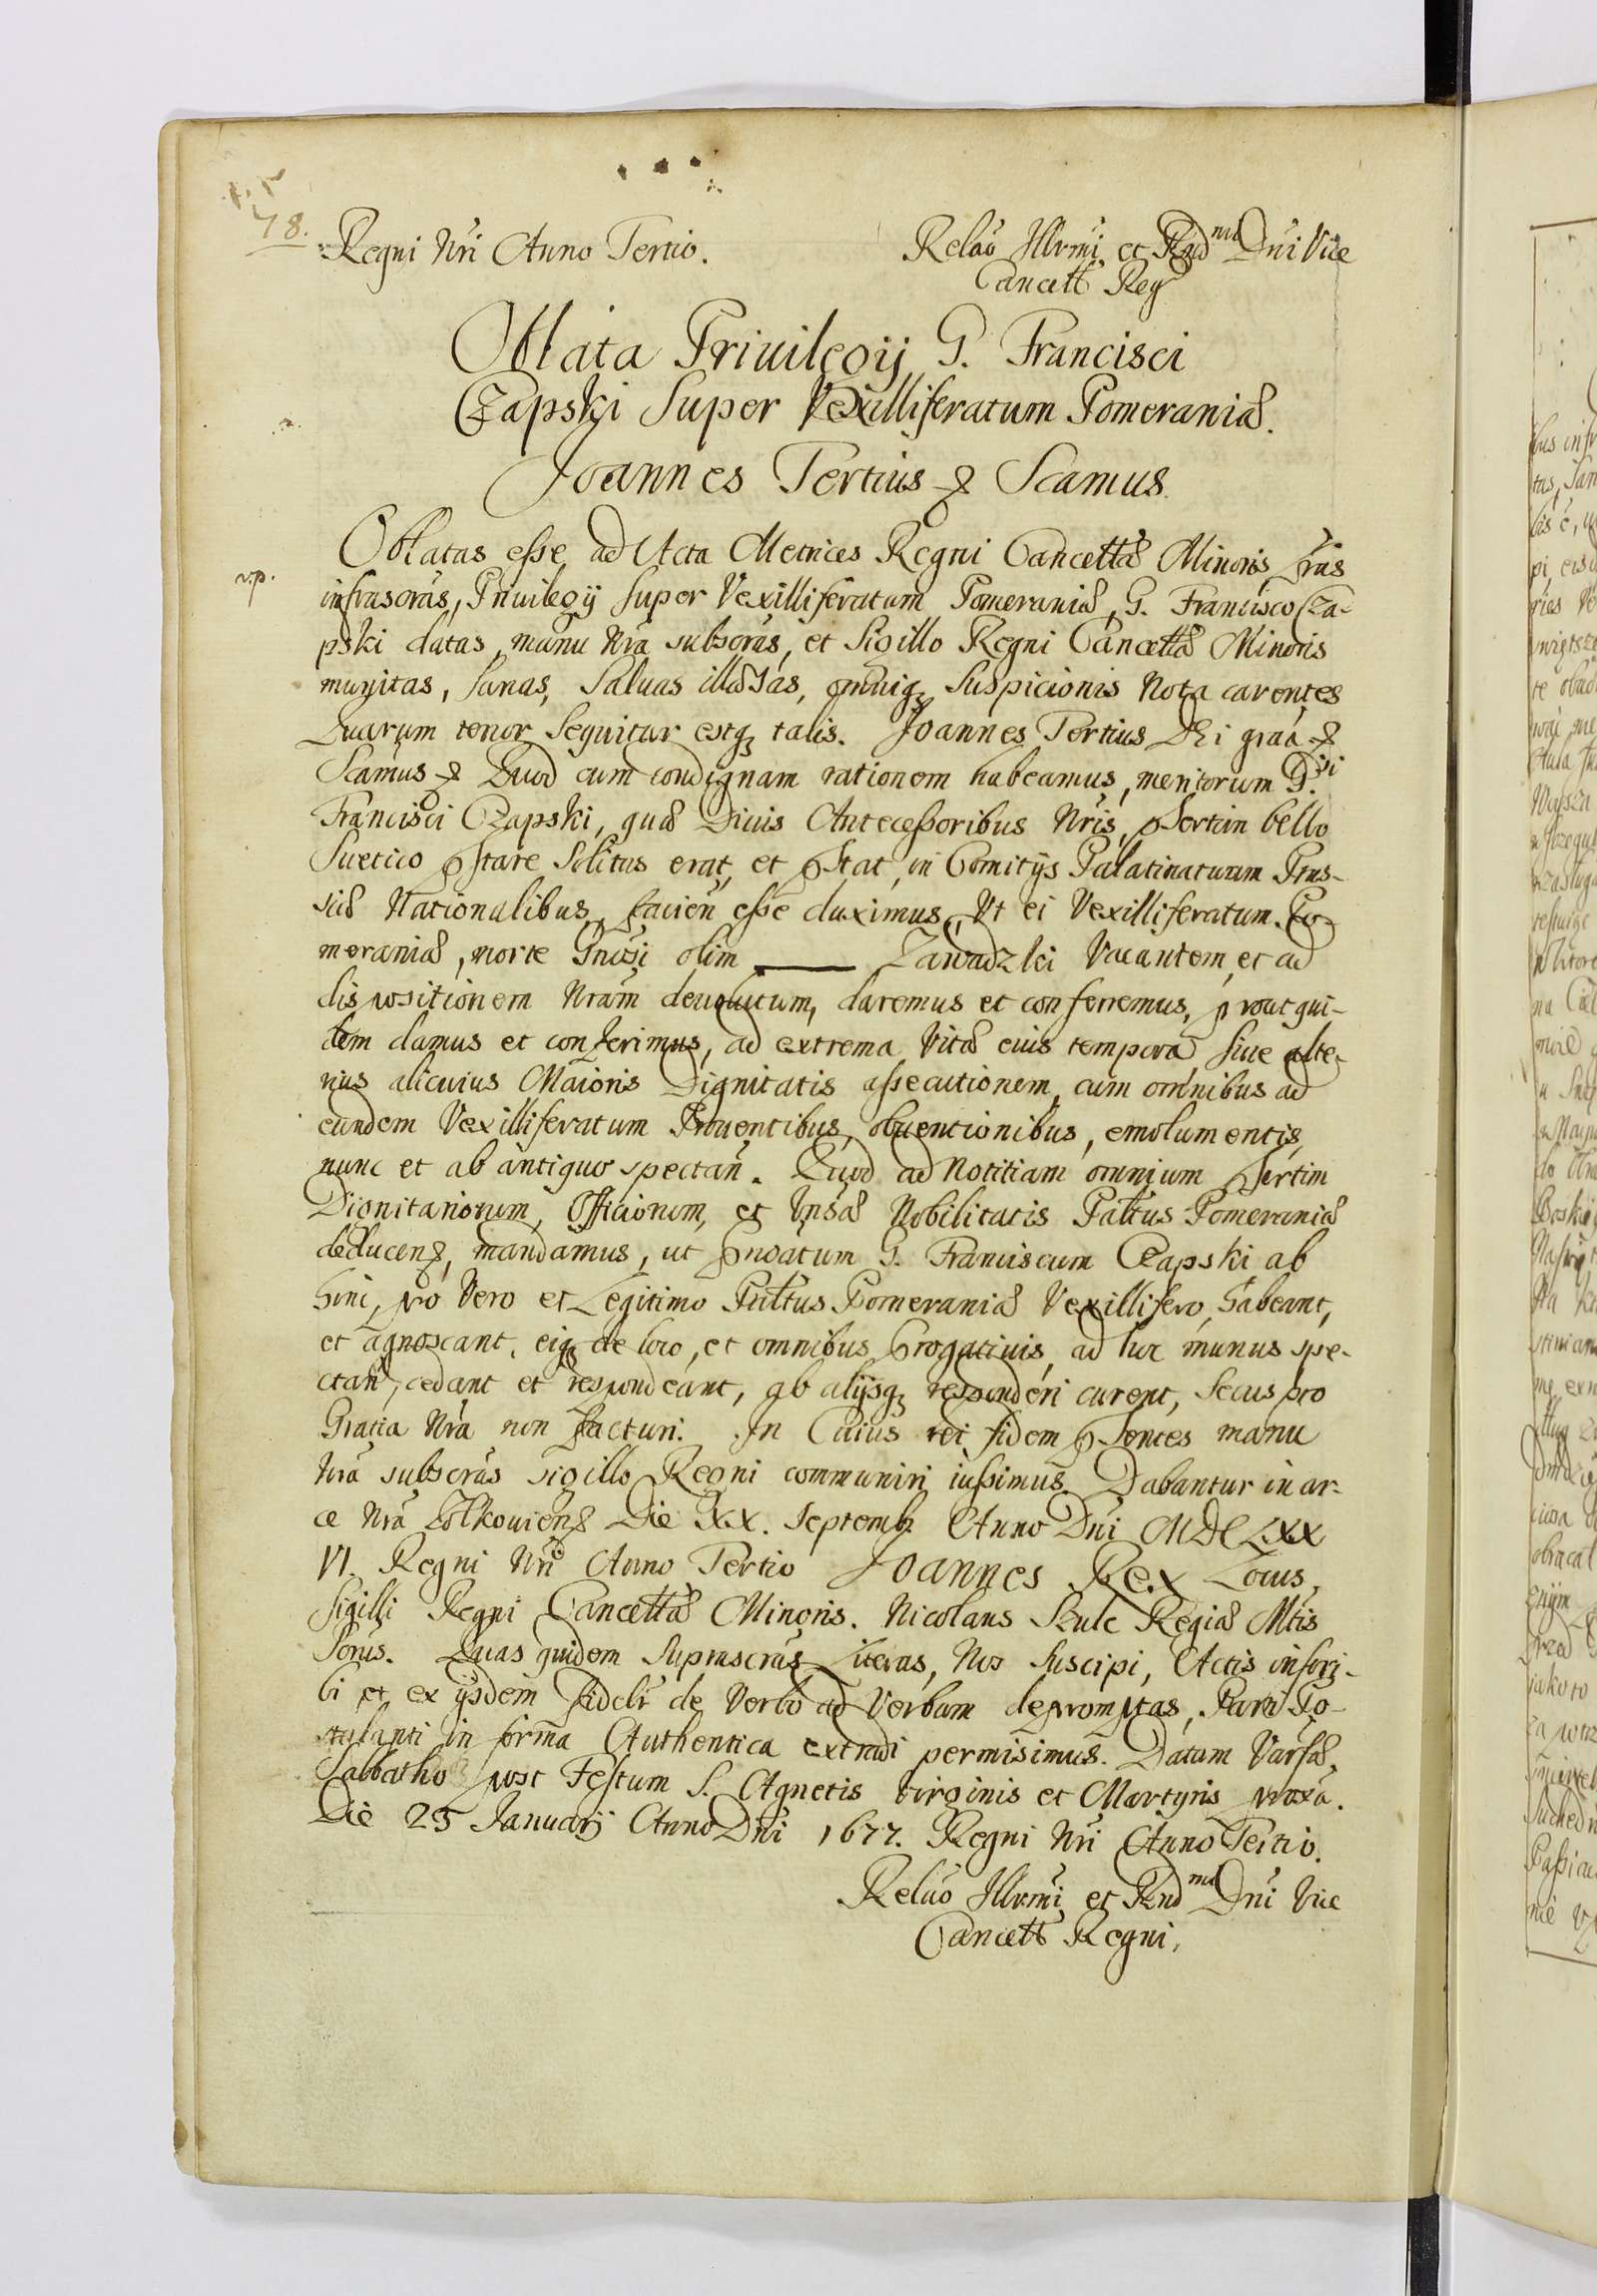 78.
Regni Nri Anno Tertio.
Relao Illrmi et Rndmi Dni Vice
Cancell Reg
Oblata Priuilegij G. Francisci
Czapski Super Vexilliferatum Pomeraniæ.
Joannes Tertius & Scamus.
Oblatas esse ad Acta Metrices Regni Cancellæ Minoris Lras
infrascras, Priuilegij super Vexilliferatum Pomeraniæ, G. Francisco Cza-
pski datas, manu Nra subscras, et Sigillo Regni Cancellæ Minoris
munitas, sanas, Saluas illæsas, omniq suspicionis Nota carentes
Quarum tenor sequitur estq talis. Joannes Tertius Dei graa &
Scamus & Quod cum condignam rationem habeamus, meritorum G.si
Francisci Czapski, quæ Diuis Antecessoribus Nris, psertim bello
Suetico pstare solitus erat, et pstat, in Comitijs Palatinatuum Prus-
siæ Nationalibus, facien esse duximus, Vt ei Vexilliferatum Po-
meraniæ, morte Gnosi olim ——— Zawadzki Vacantem, et ad
dispositionem Nram deuolutum, daremus et conferremus, prout qui-
dem damus et conferimus, ad extrema Vitæ eius tempora siue alte-
rius alicuius Maioris Dignitatis assecutionem, cum omnibus ad
eundem Vexilliferatum Prouentibus, obuentionibus, emolumentis,
nunc et ab antiquo spectan. Quod ad Notitiam omnium psertim
Dignitariorum, Officiorum, et Vnsæ Nobilitatis Paltus Pomeraniæ
deducen, mandamus, ut pnoatum G. Franciscum Czapski ab
hinc, pro Vero et Legitimo Paltus Pomeraniæ Vexillifero, habeant,
et agnoscant, eiq de loco, et omnibus progatiuis, ad hoc munus spe-
ctan, cedant et respondeant, ab alijsq responderi curent, secus pro
Gratia Nra non facturi. In Cuius rei fidem psentes manu
Nra subscras sigillo Regni communiri iussimus. Dabantur in ar-
ce Nra Zolkouien Die XX. Septemb Anno Dni MDCLXX
VI. Regni Nri Anno Tertio Joannes Rex Locus,
Sigilli Regni Cancellæ Minoris. Nicolaus Szulc Regiæ Mtis
Srius. Quas quidem suprascras Literas, Nos suscipi, Actis inscri-
bi et ex ijsdem fideli de Verbo ad Verbum depromptas, Parti Po-
stulanti in forma Authentica extradi permisimus. Datum Varsæ,
Sabbatho post Festum S. Agnetis virginis et Martyris proxa.
Die 25 Januarij Anno Dni 1677. Regni Nri Anno Tertio.
Relao Illrmi et Rndmi Dni Vice
Cancell Regni.